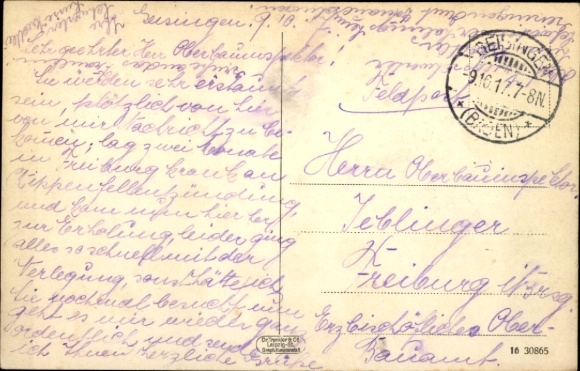 Geisingen 9. 10.
Sehr geehrter Herr Oberbauinspektor!
Sie werden sehr erstaunt
sein, plötzlich von hier
von mir Nachricht zu be-
kommen; lag zwei Monate
in Freiburg krank an
Rippenfellentzündung
und kam nun hierher
zur Erholung, leider ging
alles so schnell mit der
Verlegung, sonst hätte ich
Sie nochmal besucht nun
geht es mir wieder ganz
ordentlich und sende
ich Ihnen herzliche Grüße
Feldpost
GEISINGEN
9.10.17. 7-8N.
(BADEN)
Herrn Oberbauinspektor
Jeblinger
Freiburg i/Brsg.
Erzbischöfliches Ober-
Bauamt.
Dr. Trenkler & Co.
Leipzig-St.
16 30865